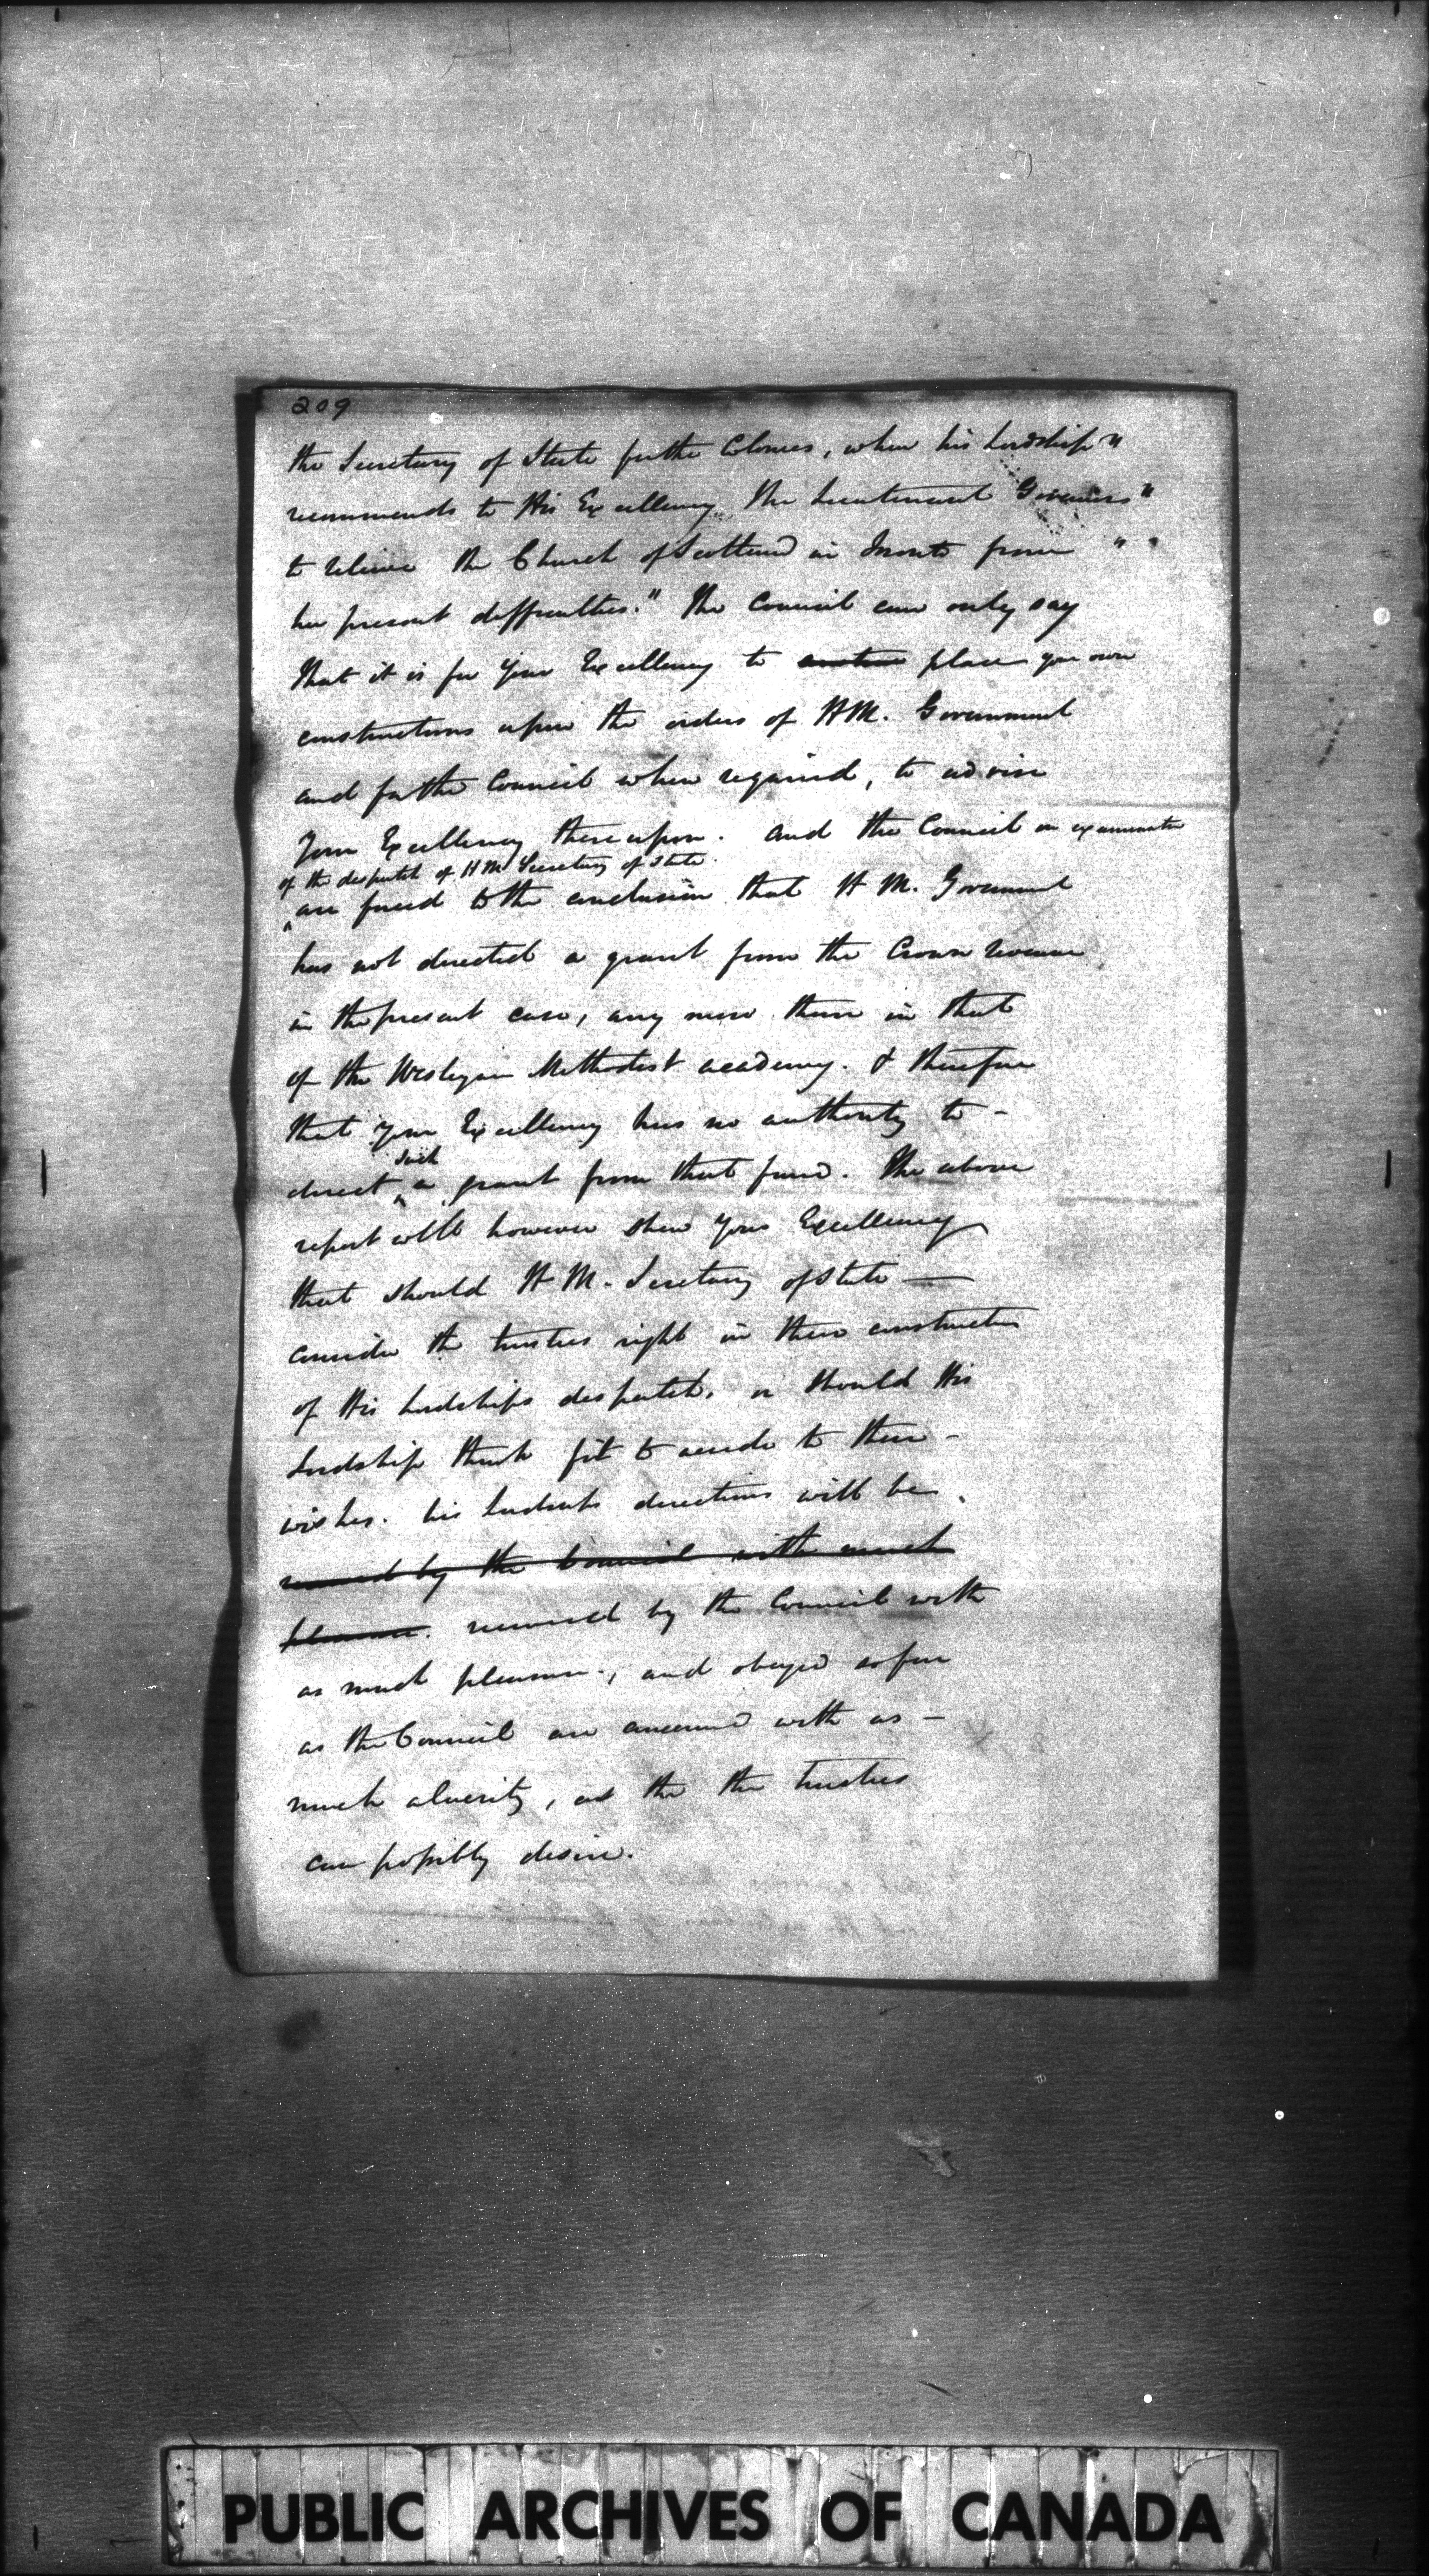 209
the Secretary of State for the Colonies, when his Lordship "
recommends to His Excellency the Lieutenant Governor "
to relieve the Church of Scotland in Toronto from " "
her present difficulties." The Council can only say
that it is for Your Excellency to place your own
constructions upon the orders of H M. Government
and for the Council when required, to advise
Your Excellency thereupon. and the Council on examination
of the despatch of H M Secretary of State
are forced to the conclusion that H M. Government
has not directed a grant from the Crown revenue
in the present case, any more than in that
of the Wesleyan Methodist academy. & therefore
that your Excellency has no authority to -
such
direct a grant from that fund. The above
report will however shew your Excellency
that should H M. Secretary of State —
consider the trustees right in their construction
of His Lordships despatch, or should His
Lordship think fit to accede to their -
wishes. his Lordships directions will be
received by the Council with much
pleasure. received by the Council with
as much pleasure, and obeyed as far
as the Council are concerned with as -
much alacrity, as the the trustees
can possibly desire.
PUBLIC ARCHIVES OF CANADA